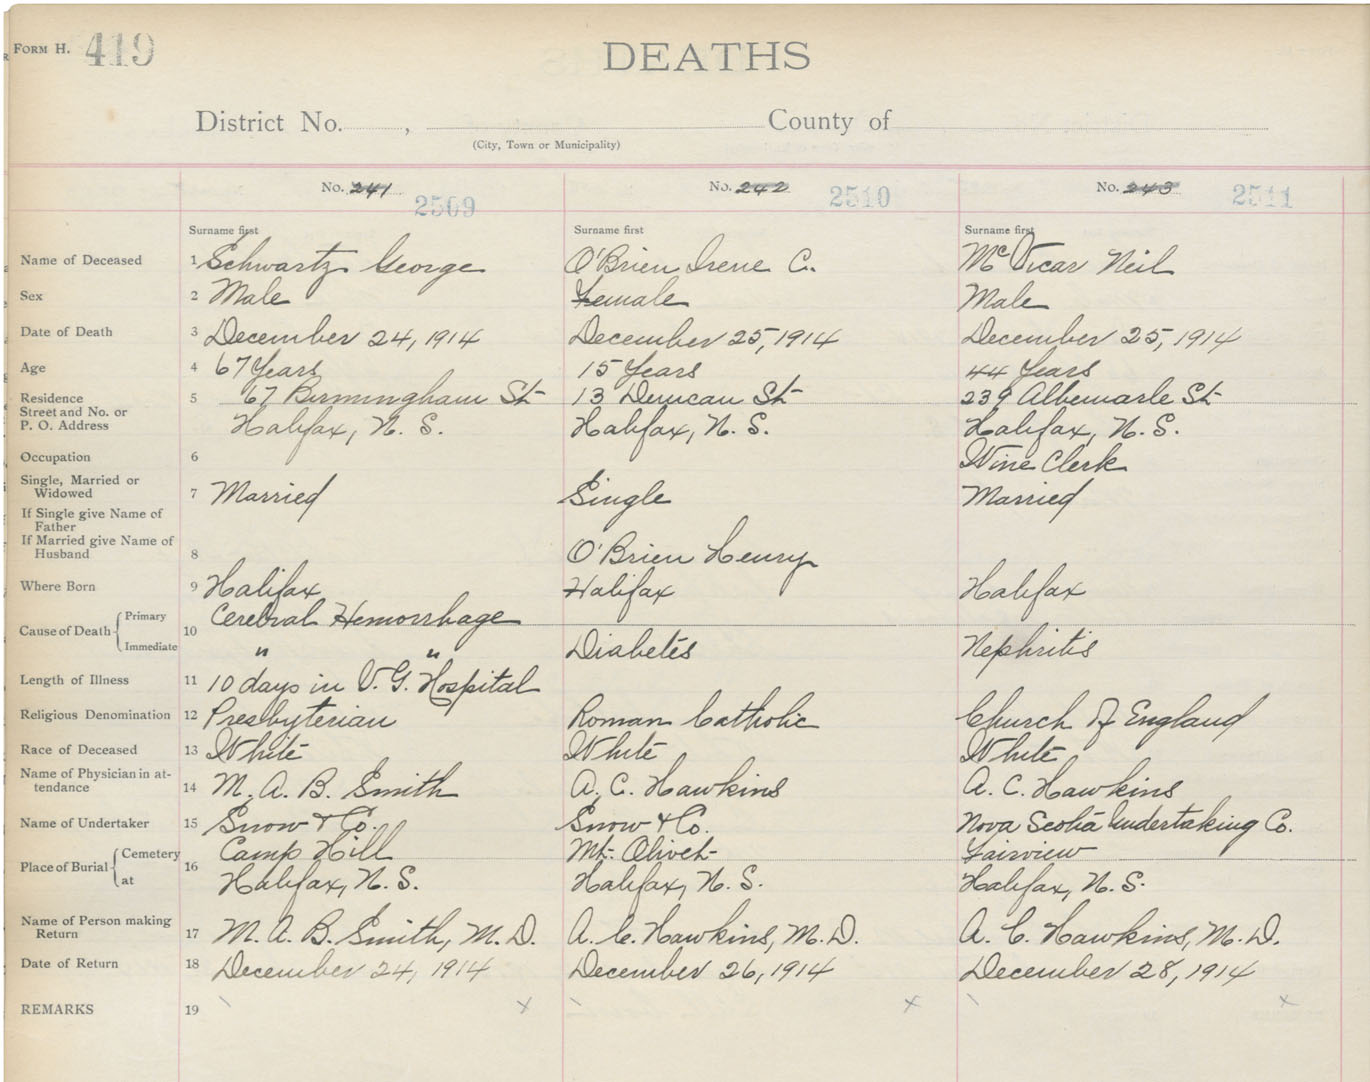 FORM H. 419
DEATHS
District No. , County of
(City, Town or Municipality)
No. 241 2509 No. 242 2510 No. 243 2511
Surname first Surname first Surname first
Name of Deceased 1 Schwartz George O'Brien Irene C. McVicar Neil
Sex 2 Male Female Male
Date of Death 3 December 24, 1914 December 25, 1914 December 25, 1914
Age 4 67 Years 15 Years 44 Years
Residence 5 67 Birmingham St 13 Duncan St 239 Albemarle St
Street and No. or
P. O. Address Halifax, N. S. Halifax, N. S. Halifax, N. S.
Occupation 6 Wine Clerk
Single, Married or
Widowed 7 Married Single Married
If Single give Name of
Father
If Married give Name of
Husband 8 O'Brien Henry
Where Born 9 Halifax Halifax Halifax
Cause of Death Primary 10 Cerebral Hemorrhage
Immediate " " Diabetes Nephritis
Length of Illness 11 10 days in V. G. Hospital
Religious Denomination 12 Presbyterian Roman Catholic Church of England
Race of Deceased 13 White White White
Name of Physician in at-
tendance 14 M. A. B. Smith A. C. Hawkins A. C. Hawkins
Name of Undertaker 15 Snow & Co. Snow & Co. Nova Scotia Undertaking Co.
Place of Burial Cemetery 16 Camp Hill Mt. Olivet Fairview
at Halifax, N. S. Halifax, N. S. Halifax, N. S.
Name of Person making
Return 17 M. A. B. Smith, M. D. A. C. Hawkins, M. D. A. C. Hawkins, M. D.
Date of Return 18 December 24, 1914 December 26, 1914 December 28, 1914
REMARKS 19 \ x \ x \ x